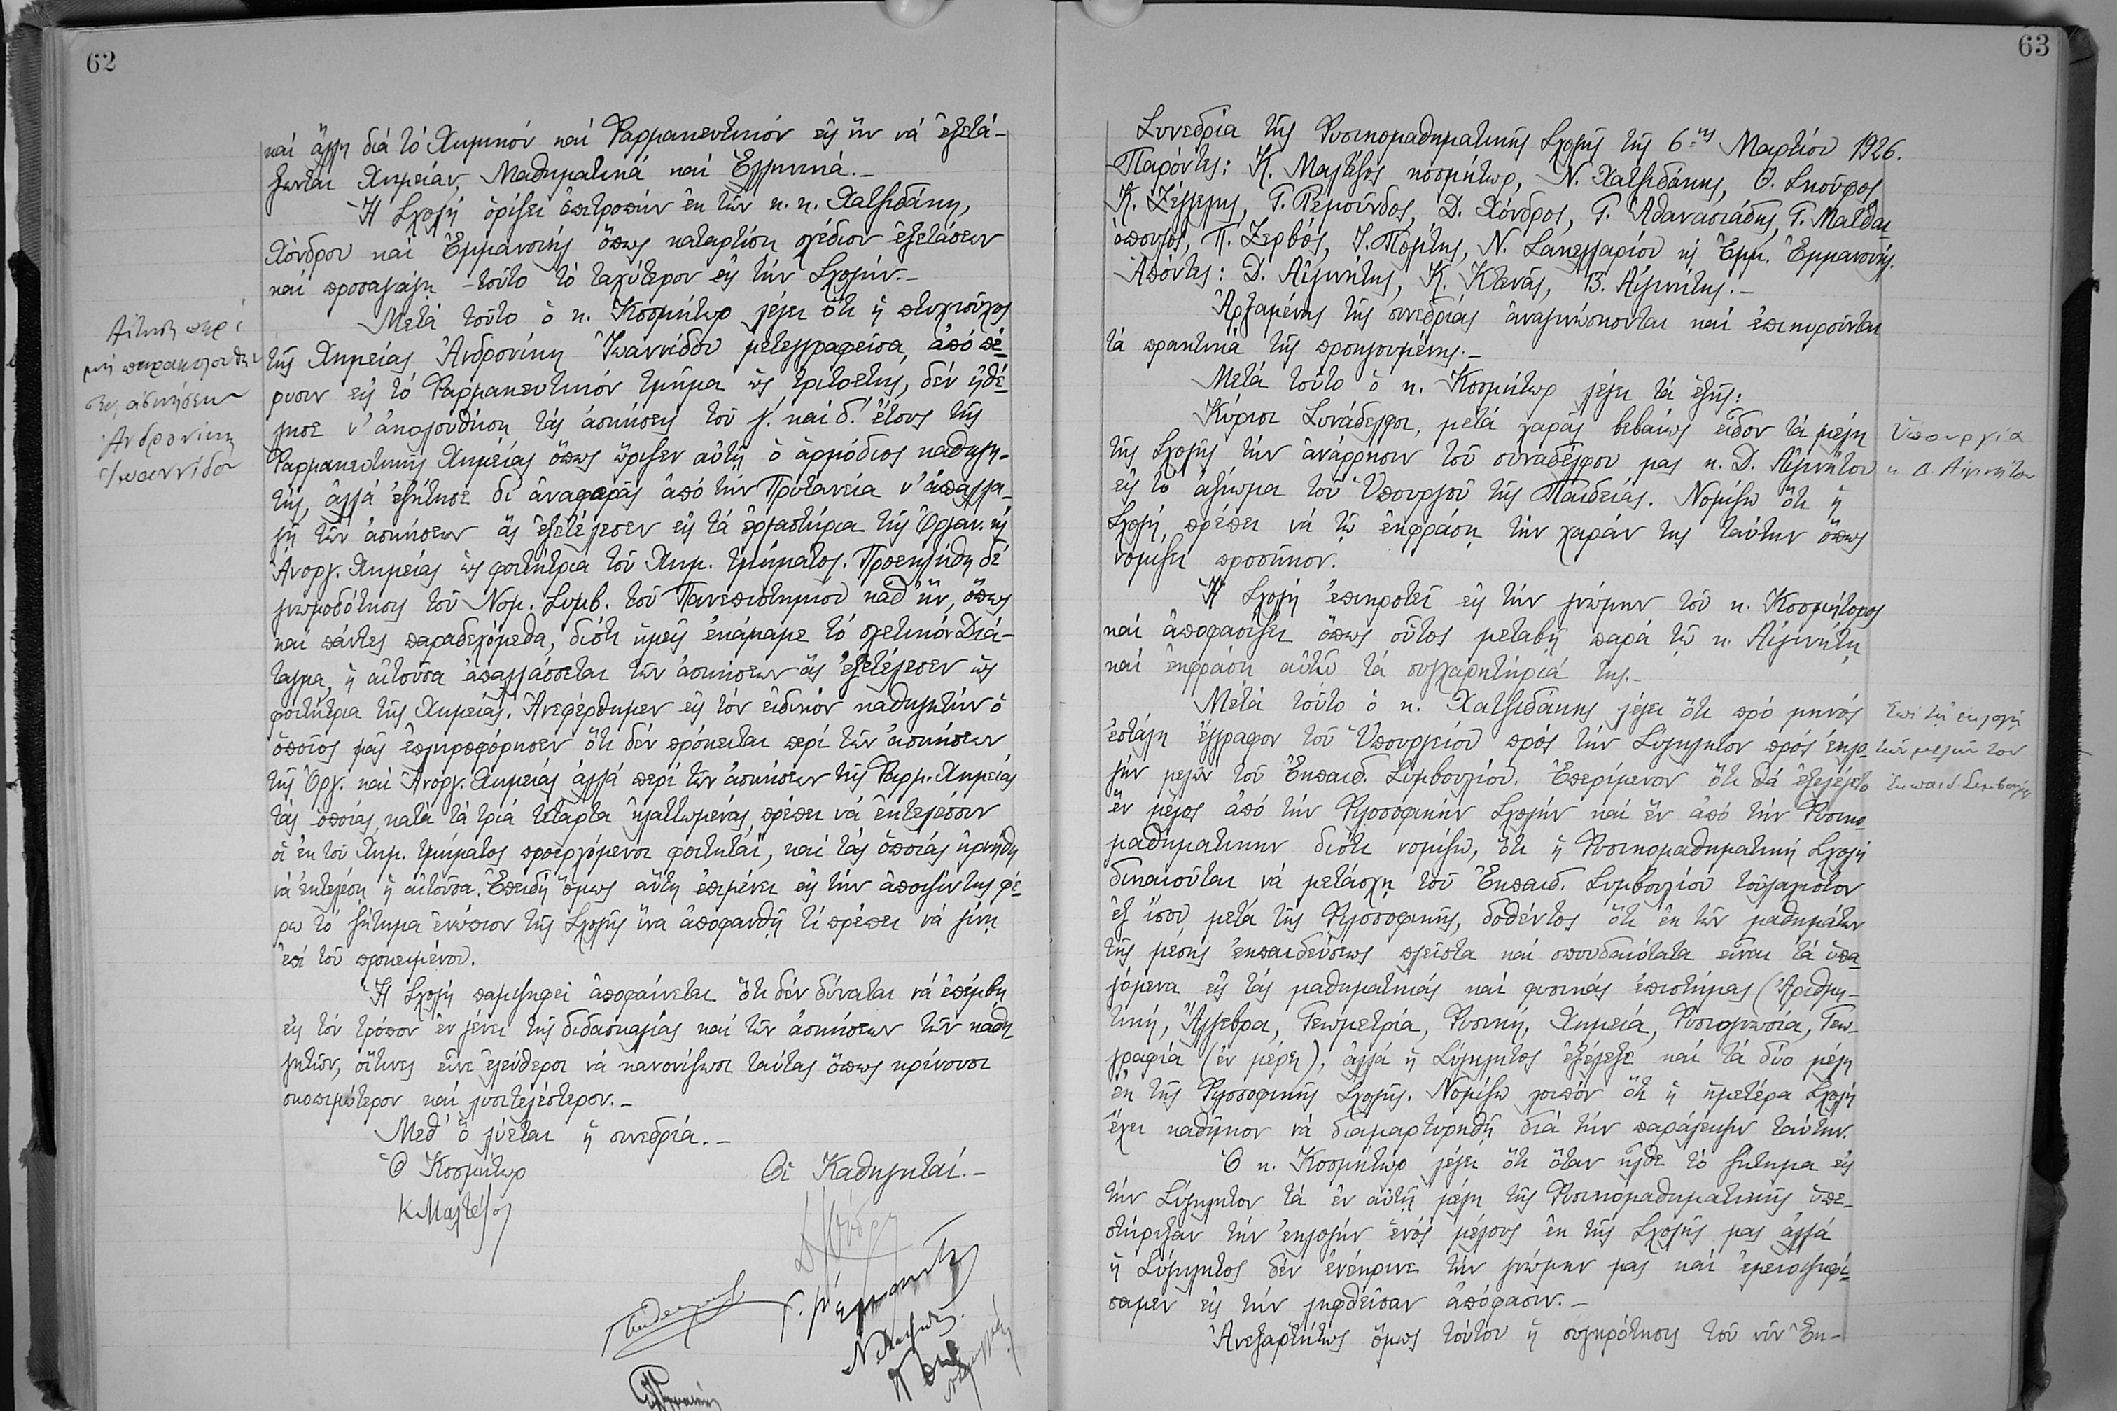 62
καὶ ἄλλη διὰ τὸ Χημικὸν καὶ Φαρμακευτικὸν εἰς ἣν νὰ ἐξετά-
ζωνται Χημείαν, Μαθηματικὰ καὶ Ἑλληνικά.-
Ἡ Σχολὴ ὁρίζει ἐπιτροπὴν ἐκ τῶν κ. κ. Χατζιδάκη,
Χόνδρου καὶ Ἐμμανουὴλ ὅπως καταρτίσῃ σχέδιον ἐξετάσεων
καὶ προσαγάγῃ τοῦτο τὸ ταχύτερον εἰς τὴν Σχολήν.-
Μετὰ τοῦτο ὁ κ. Κοσμήτωρ λέγει ὅτι ἡ πτυχιοῦχος
τῆς Χημείας Ἀνδρονίκη Ἰωαννίδου μετεγγραφεῖσα, ἀπὸ πέ-
ρυσιν εἰς τὸ Φαρμακευτικὸν τμῆμα ὡς τριτοετής, δὲν ἠθέ-
λησε ν' ἀκολουθήσῃ τὰς ἀσκήσεις τοῦ γ΄. καὶ δ΄. ἔτους τῆς
Φαρμακευτικῆς Χημείας ὅπως ὥρισεν αὐτῇ ὁ ἁρμόδιος καθηγη-
τής, ἀλλὰ ἐζήτησε δι' ἀναφορᾶς ἀπὸ τὴν Πρυτανεία ν' ἀπαλλα-
γῇ τῶν ἀσκήσεων ἃς ἐξετέλεσεν εἰς τὰ ἐργαστήρια τῆς Ὀργαν. κ
Ἀνοργ. Χημείας ὡς φοιτήτρια τοῦ Χημ. τμήματος. Προεκλήθη δὲ
γνωμοδότησις τοῦ Νομ. Συμβ. τοῦ Πανεπιστημίου καθ' ἥν, ὅπως
καὶ πάντες παραδεχόμεθα, διότι ἡμεῖς ἐκάμαμε τὸ σχετικὸν Διά-
ταγμα, ἡ αἰτοῦσα ἀπαλλάσσεται τῶν ἀσκήσεων ἃς ἐξετέλεσεν ὡς
φοιτήτρια τῆς Χημείας. Ἀνεφέρθημεν εἰς τὸν εἰδικὸν καθηγητὴν ὁ
ὁποῖος μᾶς ἐπληροφόρησεν ὅτι δὲν πρόκειται περὶ τῶν ἀσκήσεων
τῆς Ὀργ. καὶ Ἀνόργ. Χημείας ἀλλὰ περὶ τῶν ἀσκήσεων τῆς Φαρμ. Χημείας
τὰς ὁποίας, κατὰ τὰ τρία τέταρτα ἠλαττωμένας πρέπει νὰ ἐκτελέσουν
οἱ ἐκ τοῦ Χημ. τμήματος προερχόμενοι φοιτηταί, καὶ τὰς ὁποίας ἠρνήθη
νὰ ἐκτελέσῃ ἡ αἰτοῦσα. Ἐπειδὴ ὅμως αὕτη ἐπιμένει εἰς τὴν ἄποψίν της φέ-
ρω τὸ ζήτημα ἐνώπιον τῆς Σχολῆς ἵνα ἀποφανθῇ τί πρέπει νὰ γίνῃ
ἐπὶ τοῦ προκειμένου.
Ἡ Σχολὴ παμψηφεὶ ἀποφαίνεται ὅτι δὲν δύναται νὰ ἐπέμβῃ
εἰς τὸν τρόπον ἐν γένει τῆς διδασκαλίας καὶ τῶν ἀσκήσεων τῶν καθη-
γητῶν, οἵτινες εἶνε ἐλεύθεροι νὰ κανονίζωσι ταύτας ὅπως κρίνουσι
σκοπιμώτερον καὶ λυσιτελέστερον.-
Μεθ' ὃ λύεται ἡ συνεδρία.-
Ὁ Κοσμήτωρ
Οἱ Καθηγηταί.-
Κ Μαλτέζος
Αἴτησις περὶ
μὴ παρακολουθή-
σεως ἀσκήσεων
Ἀνδρονίκης
Ἰωαννίδου
63
Συνεδρία τῆς Φυσικομαθηματικῆς Σχολῆς τῆς 6.ης Μαρτίου 1926.
Παρόντες: Κ. Μαλτέζος κοσμήτωρ, Ν. Χατζιδάκης, Θ. Σκοῦφος,
Κ. Ζέγγελης, Γ. Ρεμοῦνδος, Δ. Χόνδρος, Γ. Ἀθανασιάδης, Γ. Ματθαι-
όπουλος, Π. Ζερβός, Ἰ. Πολίτης, Ν. Σακελλαρίου κ Ἐμμ. Ἐμμανουήλ.
Ἀπόντες: Δ. Αἰγινήτης, Κ. Κτενᾶς, Β. Αἰγινήτης.-
Ἀρξαμένης τῆς συνεδρίας ἀναγινώσκονται καὶ ἐπικυροῦνται
τὰ πρακτικὰ τῆς προηγουμένης.-
Μετὰ τοῦτο ὁ κ. Κοσμήτωρ λέγει τὰ ἑξῆς:
Κύριοι Συνάδελφοι, μετὰ χαρᾶς βεβαίως εἶδον τὰ μέλη
τῆς Σχολῆς τὴν ἀνάρρησιν τοῦ συναδέλφου μας κ. Δ. Αἰγινήτου
εἰς τὸ ἀξίωμα τοῦ Ὑπουργοῦ τῆς Παιδείας. Νομίζω ὅτι ἡ
Σχολή, πρέπει νὰ τῷ ἐκφράσῃ τὴν χαράν της ταύτην ὅπως
νομίζει προσῆκον.
Ἡ Σχολὴ ἐπικροτεῖ εἰς τὴν γνώμην τοῦ κ. Κοσμήτορος
καὶ ἀποφασίζει ὅπως οὗτος μεταβῇ παρὰ τῷ κ. Αἰγινήτῃ
καὶ ἐκφράσῃ αὐτῷ τὰ συγχαρητήριά της.-
Μετὰ τοῦτο ὁ κ. Χατζιδάκης λέγει ὅτι πρὸ μηνὸς
ἐστάλη ἔγγραφον τοῦ Ὑπουργείου πρὸς τὴν Σύγκλητον πρὸς ἐκλο-
γὴν μελῶν τοῦ Ἐκπαιδ. Συμβουλίου. Ἐπερίμενον ὅτι θὰ ἐξελέγετο
ἓν μέλος ἀπὸ τὴν Φιλοσοφικὴν Σχολὴν καὶ ἓν ἀπὸ τὴν Φυσικο-
μαθηματικὴν διότι νομίζω, ὅτι ἡ Φυσικομαθηματικὴ Σχολὴ
δικαιοῦται νὰ μετάσχῃ τοῦ Ἐκπαιδ. Συμβουλίου τοὐλάχιστον
ἐξ ἴσου μετὰ τῆς Φιλοσοφικῆς, δοθέντος ὅτι ἐκ τῶν μαθημάτων
τῆς μέσης ἐκπαιδεύσεως πλεῖστα καὶ σπουδαιότατα εἶναι τὰ ὑπα-
γόμενα εἰς τὰς μαθηματικὰς καὶ φυσικὰς ἐπιστήμας (Ἀριθμη-
τική, Ἄλγεβρα, Γεωμετρία, Φυσική, Χημεία, Φυσιογνωσία, Γεω-
γραφία (ἐν μέρει), ἀλλὰ ἡ Σύγκλητος ἐξέλεξε καὶ τὰ δύο μέλη
ἐκ τῆς Φιλοσοφικῆς Σχολῆς. Νομίζω λοιπὸν ὅτι ἡ ἡμετέρα Σχολὴ
ἔχει καθῆκον νὰ διαμαρτυρηθῇ διὰ τὴν παράλειψιν ταύτην.
Ὁ κ. Κοσμήτωρ λέγει ὅτι ὅταν ἦλθε τὸ ζήτημα εἰς
τὴν Σύγκλητον τὰ ἐν αὐτῇ μέλη τῆς Φυσικομαθηματικῆς ὑπε-
στήριξαν τὴν ἐκλογὴν ἑνὸς μέλους ἐκ τῆς Σχολῆς μας ἀλλὰ
ἡ Σύγκλητος δὲν ἐνέκρινε τὴν γνώμην μας καὶ ἐμειοψηφί-
σαμεν εἰς τὴν ληφθεῖσαν ἀπόφασιν.-
Ἀνεξαρτήτως ὅμως τούτου ἡ συγκρότησις τοῦ νῦν Ἐκ-
Ὑπουργία
κ. Δ. Αἰγινήτου
Ἐπὶ τῇ ἐκλογῇ
τῶν μελῶν τοῦ
Ἐκπαιδ. Συμβουλίου